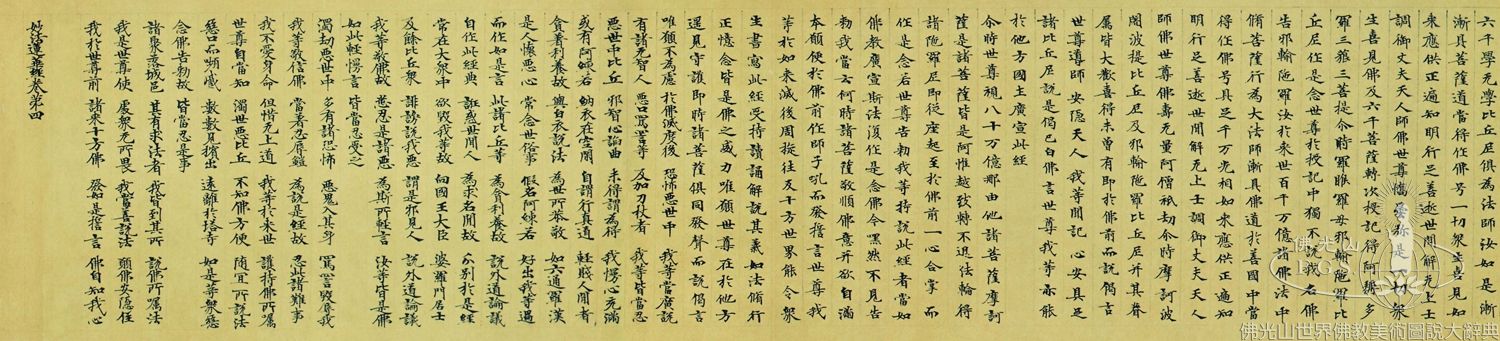 六千學无學比丘尼俱為法師如是漸
漸具菩薩道當得作佛号一切衆生喜見如
來應供正遍知明行足善逝世間解无上士
調御丈夫天人師佛世尊憍曇弥是一切衆
生喜見佛及六千菩薩轉次授記得阿耨多
羅三藐三菩提尒時羅睺羅母耶輸陁羅比
丘尼作是念世尊於授記中獨不說我名佛
告耶輸陁羅汝於來世百千万億諸佛法中
脩菩薩行為大法師漸具佛道於善國中當
得作佛号具足千万光相如來應供正遍知
明行足善逝世間解无上士調御丈夫天人
師佛世尊佛壽无量阿僧祇劫尒時摩訶波
闍波提比丘尼及耶輸陁羅比丘尼并其眷
屬皆大歡喜得未曾有即於佛前而說偈言
世尊導師 安隱天人 我等聞記 心安具足
諸比丘尼說是偈已白佛言世尊我等亦能
於他方國土廣宣此經
尒時世尊視八十万億那由他諸菩薩摩訶
薩是諸菩薩皆是阿惟越致轉不退法輪得
諸陁羅尼即從座起至於佛前一心合掌而
作是念若世尊告勑我等持說此經者當如
佛教廣宣斯法復作是念佛今嘿然不見告
勑我當云何時諸菩薩敬順佛意并欲自滿
本願便於佛前作師子吼而發誓言世尊我
等於如來滅後周旋往反十方世界能令衆
生書寫此經受持讀誦解說其義如法脩行
正憶念皆是佛之威力唯願世尊在於他方
遥見守護即時諸菩薩俱同發聲而說偈言
唯願不為慮 於佛滅度後 恐怖惡世中 我等當廣說
有諸无智人 惡口罵詈等 及加刀杖者 我等皆當忍
惡世中比丘 邪智心諂曲 未得謂為得 我慢心充滿
或有阿練若 納衣在空閑 自謂行真道 輕賤人間者
貪著利養故 與白衣說法 為世所恭敬 如六通羅漢
是人懷惡心 常念世俗事 假名阿練若 好出我等過
而作如是言 此諸比丘等 為貪利養故 說外道論議
自作此經典 誑惑世間人 為求名聞故 分別於是經
常在大衆中 欲毀我等故 向國王大臣 婆羅門居士
及餘比丘衆 誹謗說我惡 謂是邪見人 說外道論議
我等敬佛故 悉忍是諸惡 為斯所輕言 汝等皆是佛
如此輕慢言 皆當忍受之
濁劫惡世中 多有諸恐怖 惡鬼入其身 罵詈毀辱我
我等敬信佛 當著忍辱鎧 為說是經故 忍此諸難事
我不愛身命 但惜无上道 我等於來世 護持佛所囑
世尊自當知 濁世惡比丘 不知佛方便 隨宜所說法
惡口而嚬蹙 數數見擯出 遠離於塔寺 如是等衆惡
念佛告勑故 皆當忍是事
諸聚落城邑 其有求法者 我皆到其所 說佛所囑法
我是世尊使 處衆无所畏 我當善說法 願佛安隱住
我於世尊前 諸來十方佛 發如是誓言 佛自知我心
妙法蓮華經卷第四
佛光山
FGS
佛光山世界佛教美術圖說大辭典